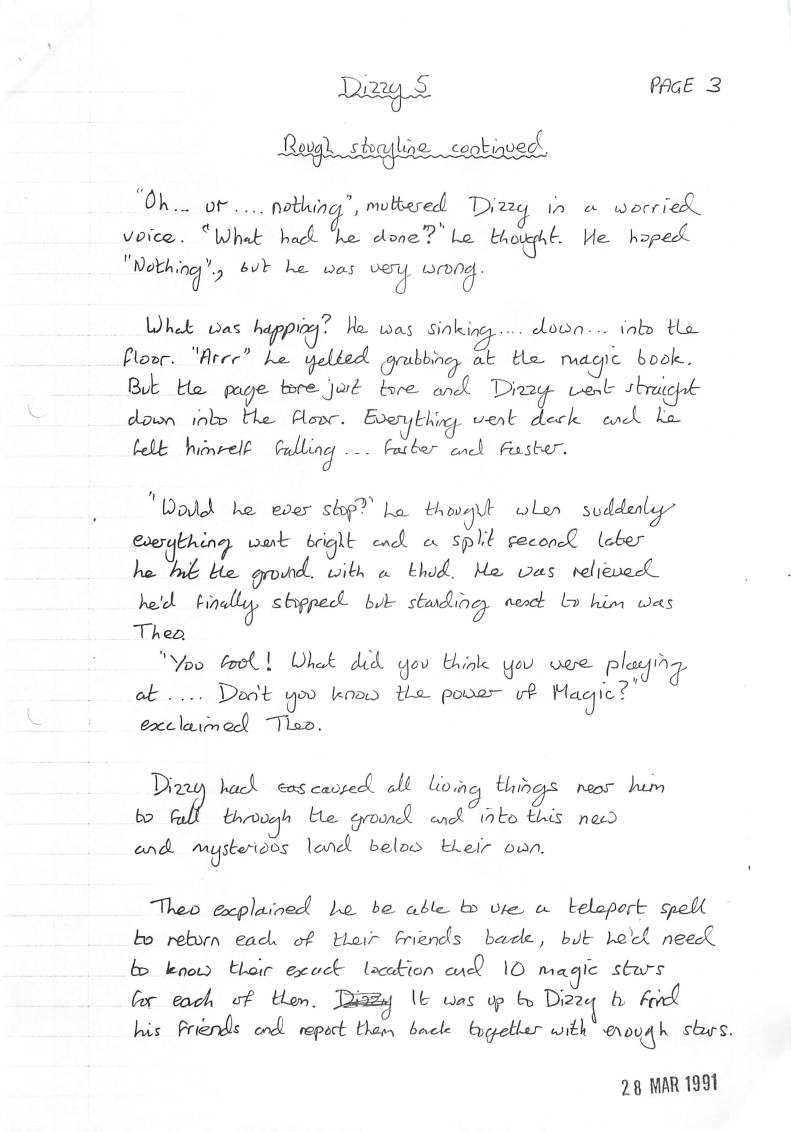 Dizzy 5
PAGE 3
Rough storyline continued
"Oh... ur .... nothing", muttered Dizzy in a worried
voice. "What had he done?" he thought. He hoped
"Nothing"., but he was very wrong.
What was happing? He was sinking.... down... into the
floor. "Arrr" he yelled grabbing at the magic book.
But the page tore just tore and Dizzy went straight
down into the floor. Everything went dark and he
felt himself falling ... faster and faster.
"Would he ever stop?" he thought when suddenly
everything went bright and a split second later
he hit the ground. with a thud. He was relieved
he'd finally stopped but standing next to him was
Theo.
"You fool! What did you think you were playing
at .... Don't you know the power of Magic?"
exclaimed Theo.
Dizzy had cas caused all living things near him
to fall through the ground and into this new
and mysterious land below their own.
Theo explained he be able to use a teleport spell
to return each of their friends back, but he'd need
to know their exact location and 10 magic stars
for each of them. Dizzy It was up to Dizzy to find
his friends and report them back together with enough stars.
28 MAR 1991